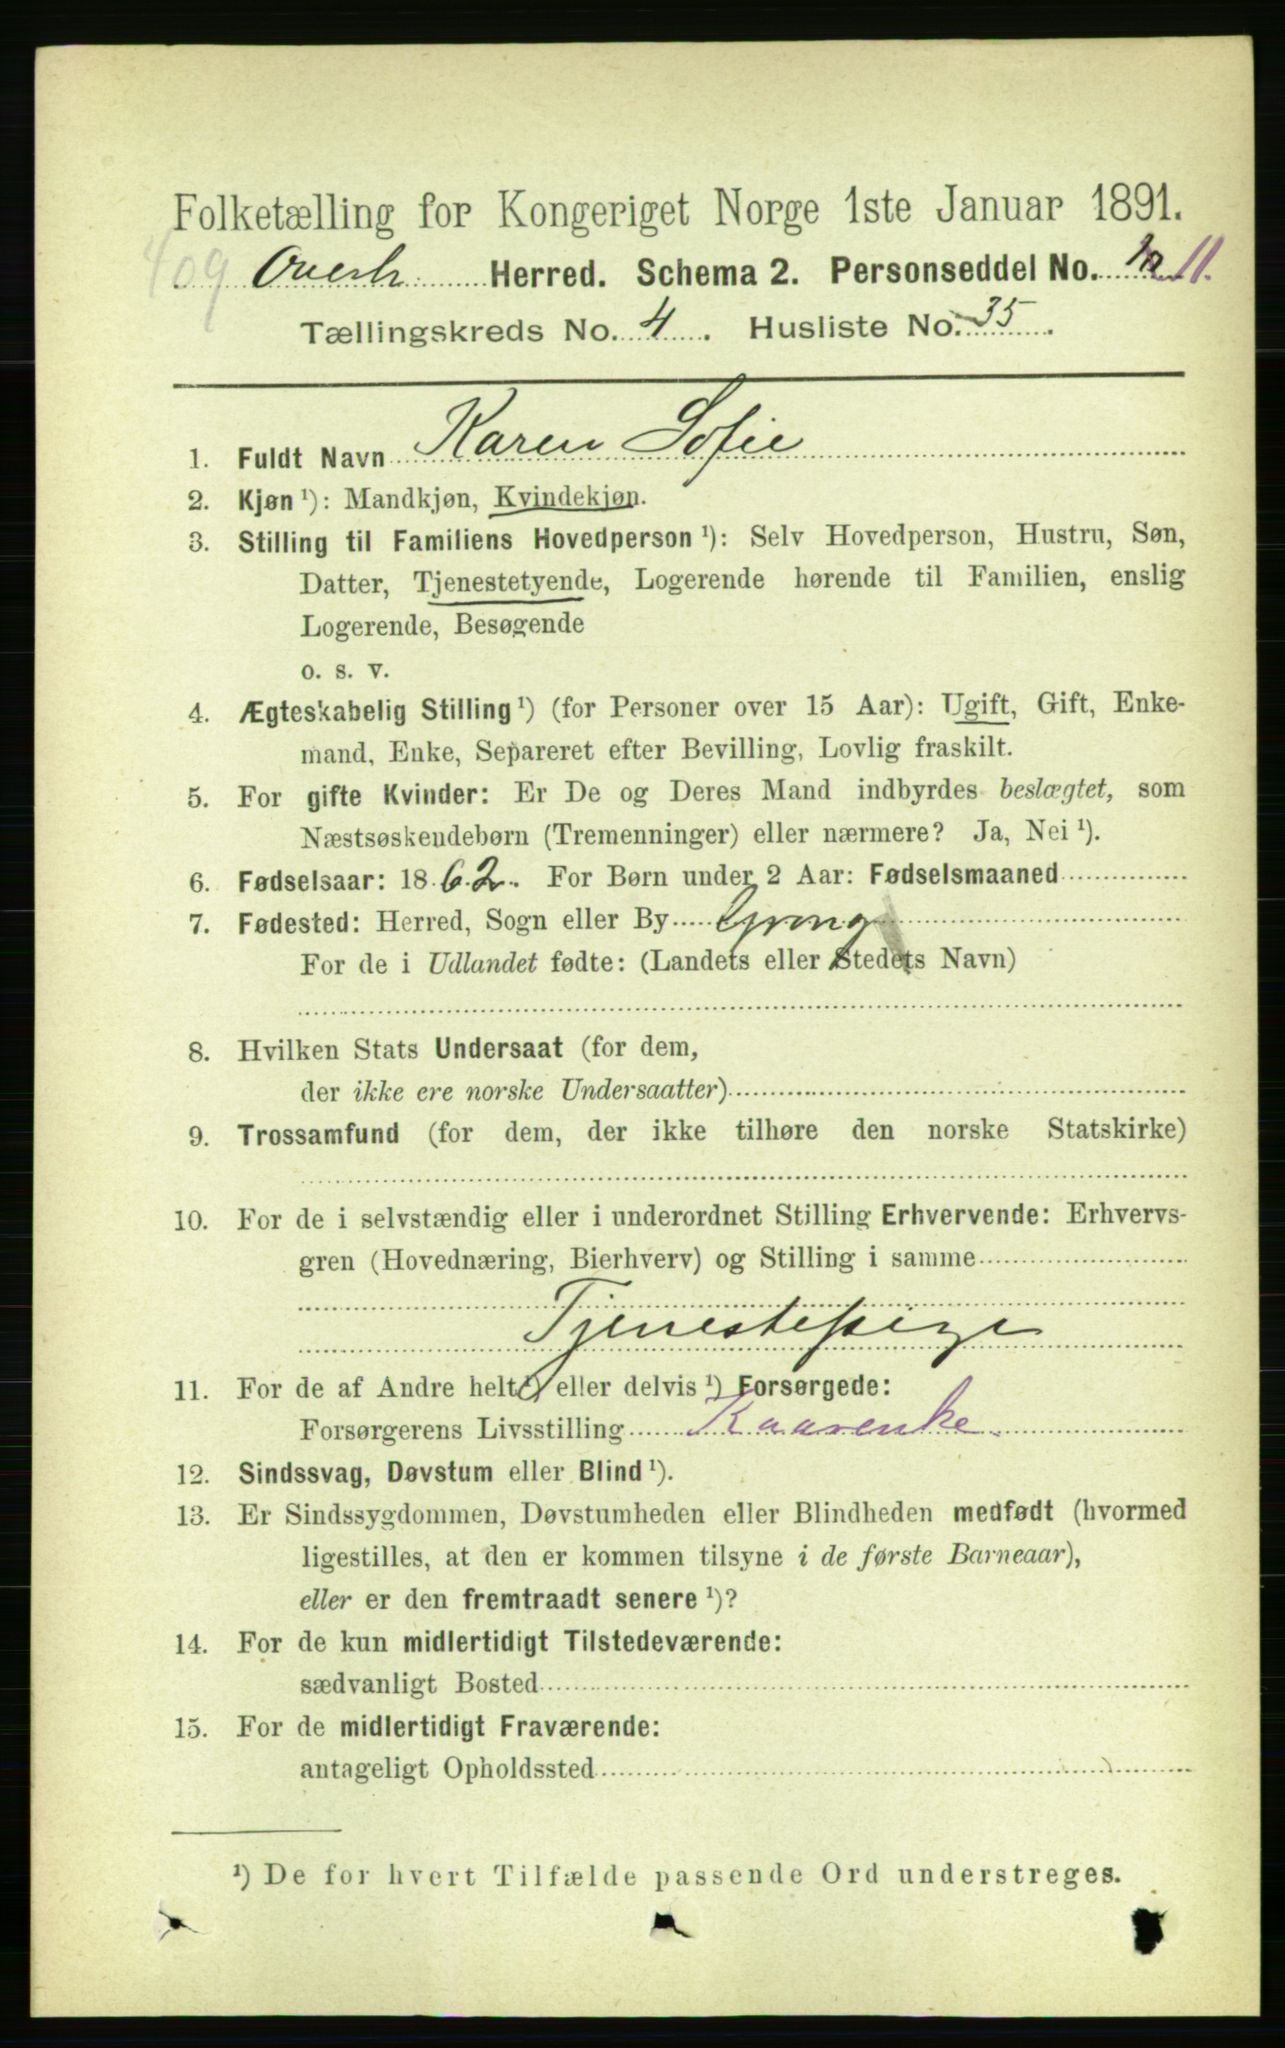 Folketælling for Kongeriget Norge 1ste Januar 1891.
409 Overh. Herred. Schema 2. Personseddel No. 11.
Tællingskreds No. 4. Husliste No. 35.
1. Fuldt Navn Karen Sofie
2. Kjøn ¹): Mandkjøn, Kvindekjøn.
3. Stilling til Familiens Hovedperson ¹): Selv Hovedperson, Hustru, Søn,
Datter, Tjenestetyende, Logerende hørende til Familien, enslig
Logerende, Besøgende
o. s. v.
4. Ægteskabelig Stilling ¹) (for Personer over 15 Aar): Ugift, Gift, Enke-
mand, Enke, Separeret efter Bevilling, Lovlig fraskilt.
5. For gifte Kvinder: Er De og Deres Mand indbyrdes beslægtet, som
Næstsøskendebørn (Tremenninger) eller nærmere? Ja, Nei ¹).
6. Fødselsaar: 1862. For Børn under 2 Aar: Fødselsmaaned
7. Fødested: Herred, Sogn eller By Grong
For de i Udlandet fødte: (Landets eller Stedets Navn)
8. Hvilken Stats Undersaat (for dem,
der ikke ere norske Undersaatter)
9. Trossamfund (for dem, der ikke tilhøre den norske Statskirke)
10. For de i selvstændig eller i underordnet Stilling Erhvervende: Erhvervs-
gren (Hovednæring, Bierhverv) og Stilling i samme
Tjenestepige
11. For de af Andre helt eller delvis ¹) Forsørgede:
Forsørgerens Livsstilling Kaarenke.
12. Sindssvag, Døvstum eller Blind ¹).
13. Er Sindssygdommen, Døvstumheden eller Blindheden medfødt (hvormed
ligestilles, at den er kommen tilsyne i de første Barneaar),
eller er den fremtraadt senere ¹)?
14. For de kun midlertidigt Tilstedeværende:
sædvanligt Bosted
15. For de midlertidigt Fraværende:
antageligt Opholdssted
¹) De for hvert Tilfælde passende Ord understreges.